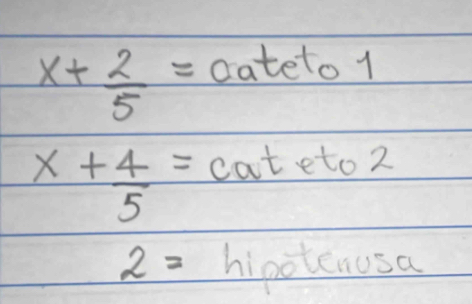 x + 2/5 = cateto 1
x + 4/5 = cateto 2
2 = hipotenusa